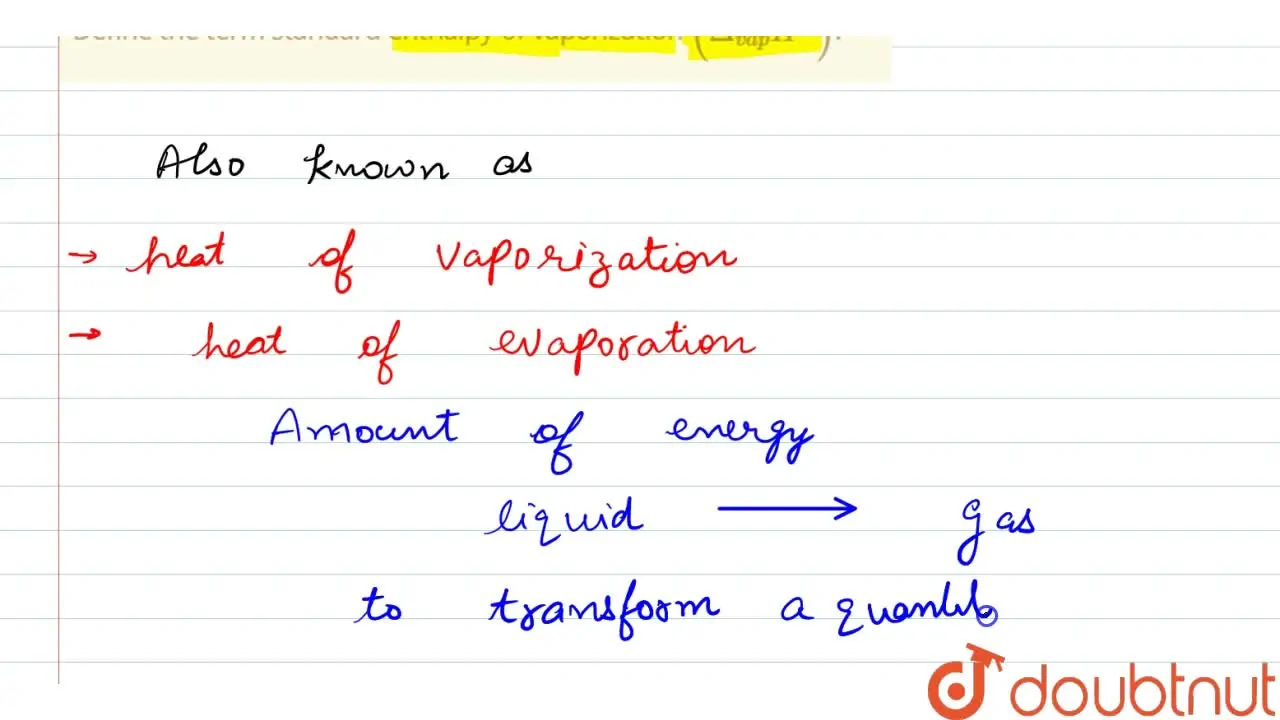 Define the term standard enthalpy of vaporization
Also known as
→ heat of vaporization
→ heat of evaporation
Amount of energy
liquid ⟶ gas
to transform a
doubtnut